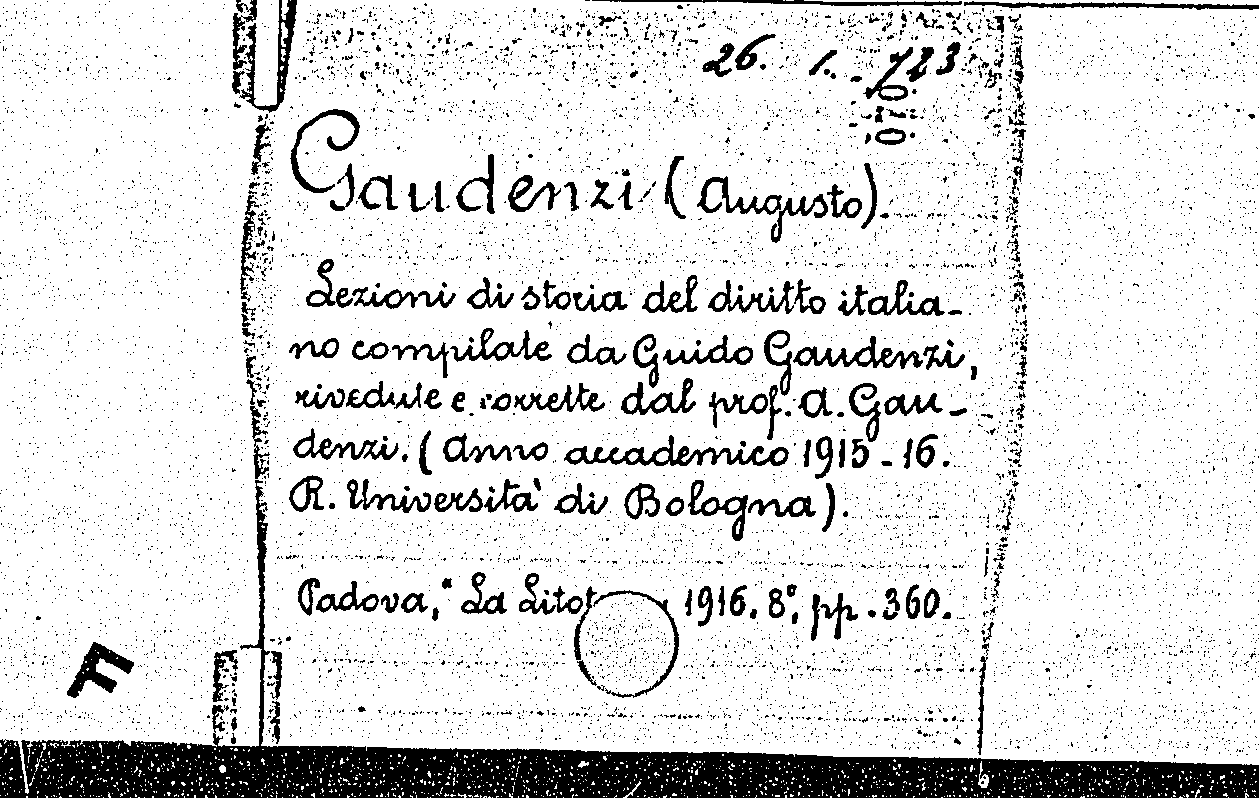 26. 1. 723
Gaudenzi (Augusto).
Lezioni di storia del diritto italia-
no compilate da Guido Gaudenzi,
rivedute e corrette dal prof. A. Gau-
denzi. (Anno accademico 1915-16.
R. Università di Bologna).
Padova, "La 1916. 8°, pp. 360.
F